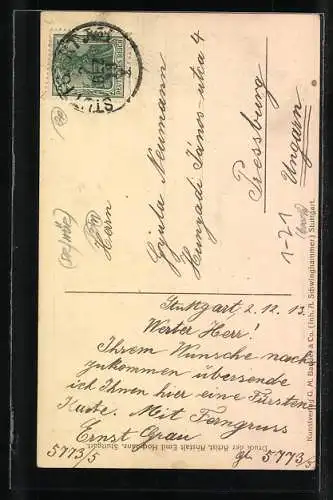 Herrn
Gyula Neumann
Hunyadi János-utca 4
Pressburg
Ungarn
1-21
Stuttgart 2.12.13.
Werter Herr!
Ihrem Wunsche nach
zukommen übersende
ich Ihnen hier eine Fürsten
Karte. Mit Ferngruss
Ernst Grau
5773/5
gl. 5773/5
Druck der Artist. Anstalt Emil Hochdanz, Stuttgart.
Kunstverlag G. M. & Co. (Inh. A. Schwinghammer) Stuttgart.